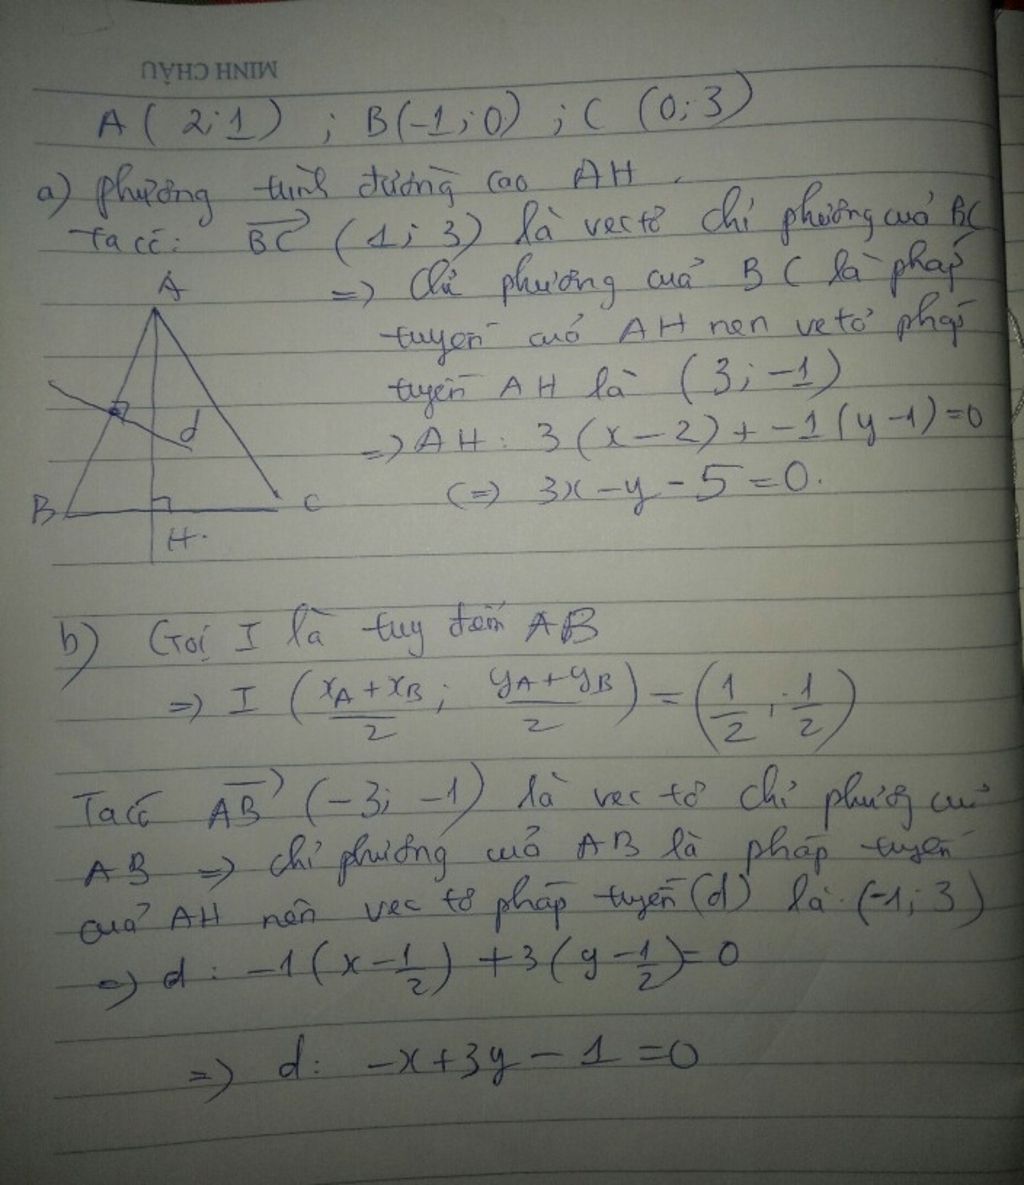 MINH CHÂU
A ( 2; 1 ) ; B(-1; 0) ; C (0; 3)
a) phương trình đường cao AH.
Ta có: \overrightarrow{BC} (1; 3) là vectơ chỉ phương của BC
=> Chỉ phương của BC là pháp
tuyến của AH nên vetơ pháp
tuyến AH là (3; -1)
=> AH: 3(x-2) + -1(y-1)=0
(=> 3x-y-5=0.
A
d
B
C
H.
b) Gọi I là tuy điểm AB
=> I (\frac{x_A+x_B}{2}; \frac{y_A+y_B}{2}) = (\frac{1}{2}; \frac{1}{2})
Ta có \overrightarrow{AB} (-3; -1) là vec tơ chỉ phương của
AB => chỉ phương của AB là pháp tuyến
của AH nên vec tơ pháp tuyến (d) là (-1; 3)
=> d: -1(x-\frac{1}{2}) + 3(y-\frac{1}{2})=0
=> d: -x+3y-1=0